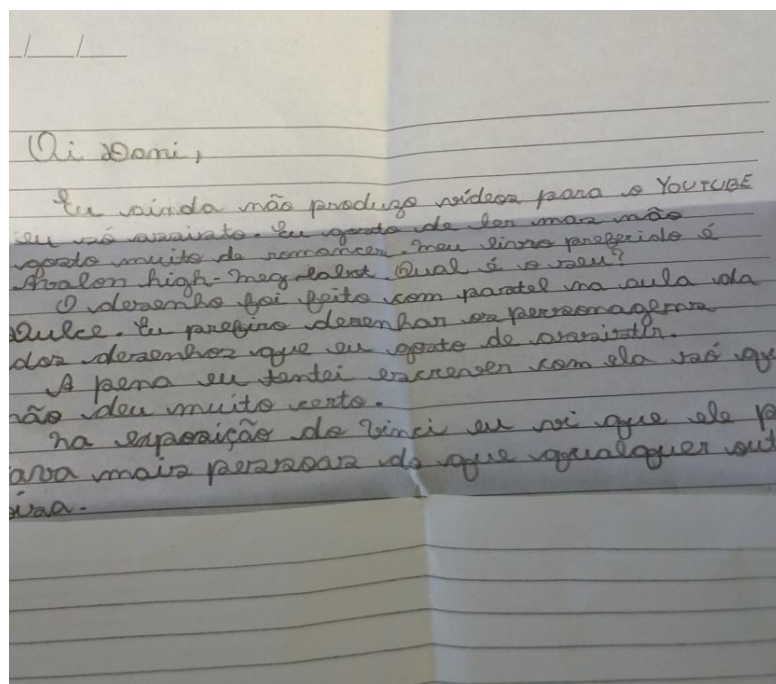 _/___/___
Oi Domi,
Eu ainda não produzo vídeos para o YOUTUBE
eu só assisto. Eu gosto de ler mas não
gosto muito de romances. meu livro preferido é
Avalon high-meg Qual é o seu?
O desenho foi feito com pastel na aula da
Dulce. Eu prefiro desenhar os personagens
dos desenhos que eu gosto de assistir.
A pena eu tentei escrever com ela só qu
não deu muito certo.
na exposição do Vinci eu vi que ele p
ava mais pessoas do que qualquer out
isa.